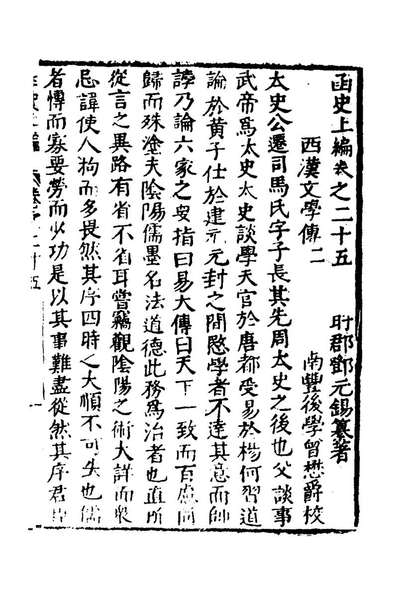 函史上編卷之二十五
盱郡鄧元錫纂著
西漢文學傳二
南豐後學曾懋爵校
太史公遷司馬氏字子長其先周太史之後也父談事
武帝爲太史太史談學天官於唐都受易於楊何習道
論於黃子仕於建元元封之間愍學者不達其意而師
誖乃論六家之要指曰易大傳曰天下一致而百慮同
歸而殊塗夫陰陽儒墨名法道德此務爲治者也直所
從言之異路有省不省耳嘗竊觀陰陽之術大詳而衆
忌諱使人拘而多畏然其序四時之大順不可失也儒
者博而寡要勞而少功是以其事難盡從然其序君臣